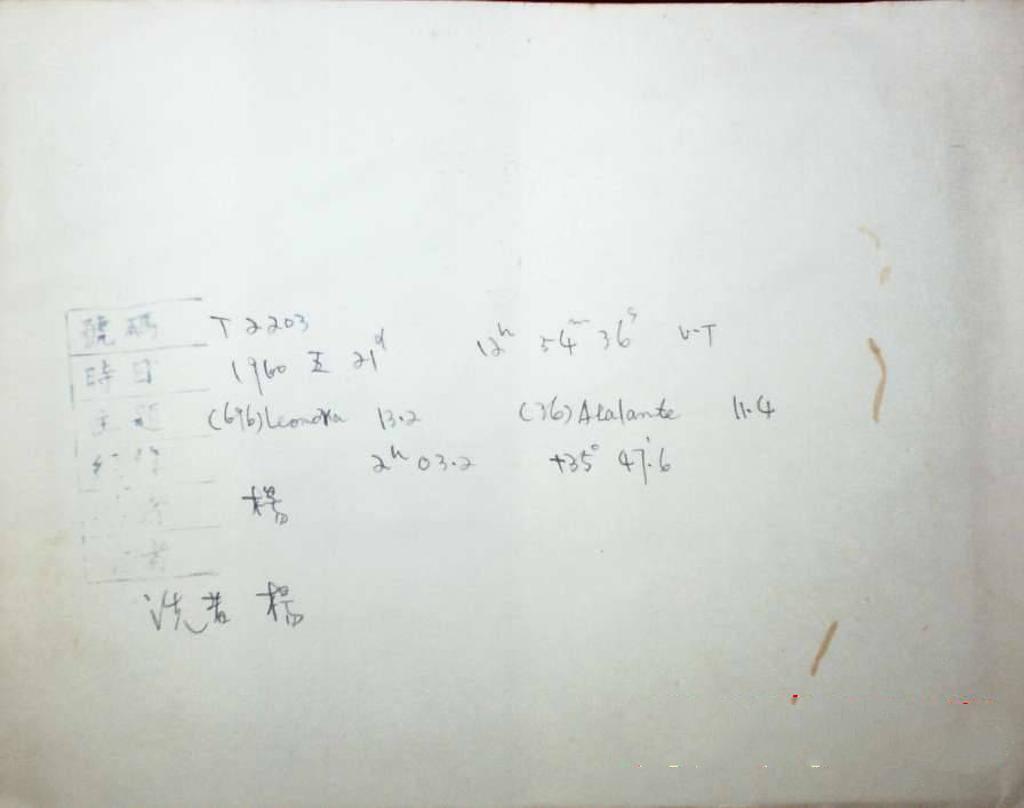 號碼 T 2203
時日 1960 五 21ᵈ 12ʰ 54ᵐ 36ˢ U·T
主題 (696)Leonora 13.2 (36)Atalante 11.4
2ʰ 03.2 +35° 47.6
楊
洗者 楊